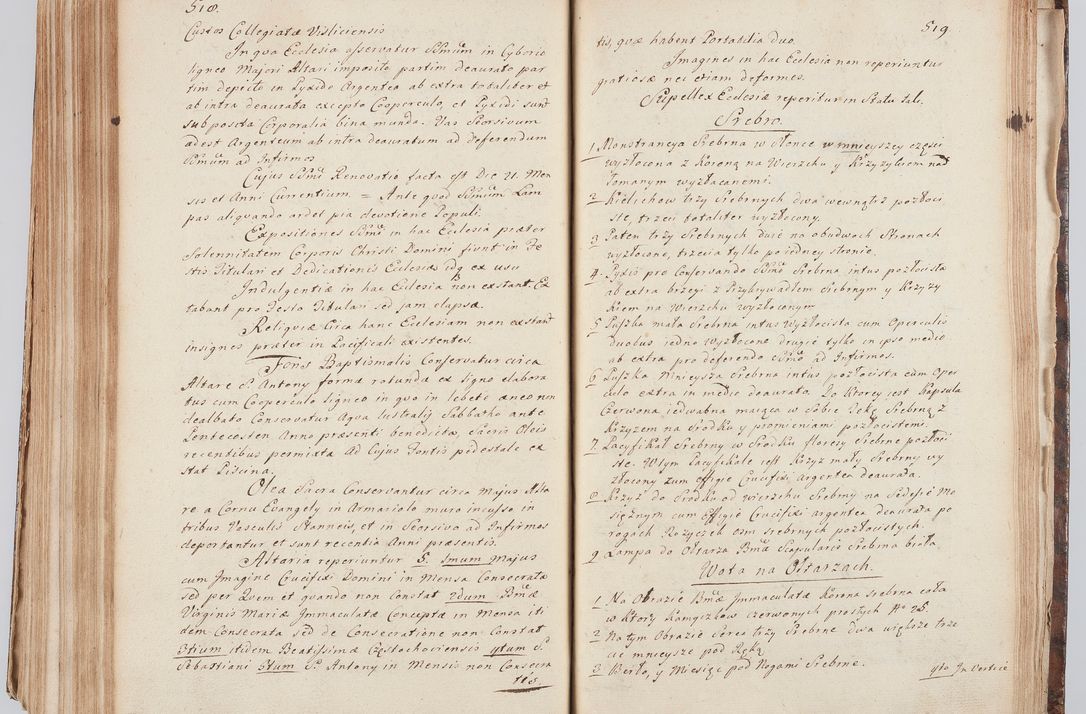 518.
Custos Collegiatæ Visliciensis
In qva Ecclesia asservatur SSmum in Cyborio
ligneo Majori Altari imposito partim deaurato par
tim depicto in Pyxide Argentea ab extra totaliter et
ab intra deaurata excepto Cooperculo, et Pyxidi sunt
subposita Corporalia bina munda. Vas Seorsivum
adest Argenteum ab intra deauratum ad deferendum
SSmum ad Infirmos
Cujus SSmi Renovatio facta est Die 21. Men
sis et Anni Currentium = Ante quod SSmum Lam
pas aliquando ardet pia devotione Populi.
Expositiones SSmi in hac Ecclesia præter
Solennitatem Corporis Christi Domini fiunt in Fe
stis Titulari et Dedicationis Ecclesiæ idq ex usu
Indulgentiæ in hac Ecclesia non exstant. Ex
tabant pro Festo Titulari sed jam elapsæ.
Reliqviæ Circa hanc Ecclesiam non exstant
insignes præter in Pacificali existentes.
Fons Baptismalis Conservatur circa
Altare S. Antony forma rotunda ex ligno elabora
tus cum Cooperculo ligneo in qvo in lebete æneo non
dealbato Conservatur Aqva lustralis Sabbatho ante
Pentecosten Anno præsenti benedicta, Sacris Oleis
recentibus permixta Ad Cujus Fontis pedestale ex
stat Piscina.
Olea Sacra Conservantur circa Majus Alta
re a Cornu Evangely in Armariolo muro incluso in
tribus Vasculis Stanneis, et in Seorsivo ad Infirmos
deportantur et sunt recentia Anni præsentis.
Altaria reperiuntur 5. 1mum Majus
cum Imagine Crucifixi Domini in Mensa Consecrata
sed per Quem et quando non Constat 2dum Bmæ
Virginis Mariæ Immaculatæ Conceptæ in Mensa iti
dem Consecrata sed de Consecratione non Constat
3tium itidem Beatissimæ Częstochoviensis 4tum S.
Sebastiani 5tum S. Antony in Mensis non Consecra
tis.
519
tis, qvæ habent Portatilia duo.
Imagines in hac Ecclesia non reperiuntur
gratiosæ nec etiam deformes.
Supellex Ecclesiæ reperitur in Statu tali.
Srebro.
1 Monstrancya Srebrna w Słońce w mnieyszey części
wyzłocona z Koroną na Wierzchu y Krzyżykiem nad
łomanym wyzłacanemi.
2 Kielichow trzy Srebrnych dwa wewnątrz pozłoci
ste, trzeci totaliter wyzłocony.
3 Paten trzy Srebrnych dwie na obudwoch Stronach
wyzłocone, trzecia tylko po iedney stronie.
4. Pyxis pro Conservando SSmo Srebrna intus pozłocista
ab extra brzegi z Przykrywadłem Srebrnym y Krzyży
kiem na Wierzchu wyzłoconym
5 Puszka mała Srebrna intus Wyzłocista cum Operculis
duobus iedno Wyzłocone drugie tylko in ipso medio
ab extra pro deferendo SSmo ad Infirmos.
6 Puszka mnieysza Srebrna intus pozłocista cum Oper
culo extra in medio deaurata. Do Ktorey iest Kapsula
Czerwona iedwabna maiąca w Sobie Rękę Srebrną z
Krzyzem na Srodku y promieniami pozłocistemi
7. Pacyfikał Srebrny w Srodku floresy Srebrne pozłoci
ste. W tym Pacyfikale iest Krzyż mały Srebrny wy
złocony cum effigie Crucifixi Argentea deaurata.
8 Krzyż do Srodku od wierzchu Srebrny na Pedeście Mo
siężnym cum Effigie Crucifixi argentea deaurata po
rogach Rożyczek osm srebrnych pozłocistych.
9 Lampa do Ołtarza Bmæ Scapularis Srebrna biała
Wota na Ołtarzach.
1. Na Obrazie Bmæ Immaculatæ Korona Srebrna cała
w Ktory Kamyczkow czerwonych prostych No 25.
2 Na tym Obrazie Serca trzy Srebrne dwa większe trze
cie mnieysze pod Ręką
3 Berło, y Miesiąc pod Nogami Srebrne.
4to In Vertice